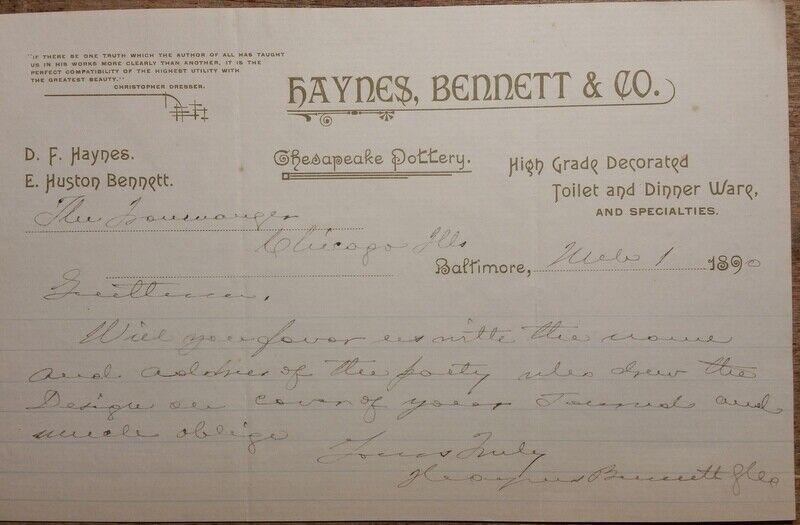 "IF THERE BE ONE TRUTH WHICH THE AUTHOR OF ALL HAS TAUGHT
US IN HIS WORKS MORE CLEARLY THAN ANOTHER, IT IS THE
PERFECT COMPATIBILITY OF THE HIGHEST UTILITY WITH
THE GREATEST BEAUTY."
CHRISTOPHER DRESSER.
HAYNES, BENNETT & CO.
D. F. Haynes.
E. Huston Bennett.
Chesapeake Pottery.
High Grade Decorated
Toilet and Dinner Ware,
AND SPECIALTIES.
The Ironmonger
Chicago Ills
Baltimore, Mch 1 1890
Gentlemen,
Will you favor us with the name
and address of the party who drew the
Design on cover of your Journal and
much oblige
Yours Truly
Haynes Bennett & Co